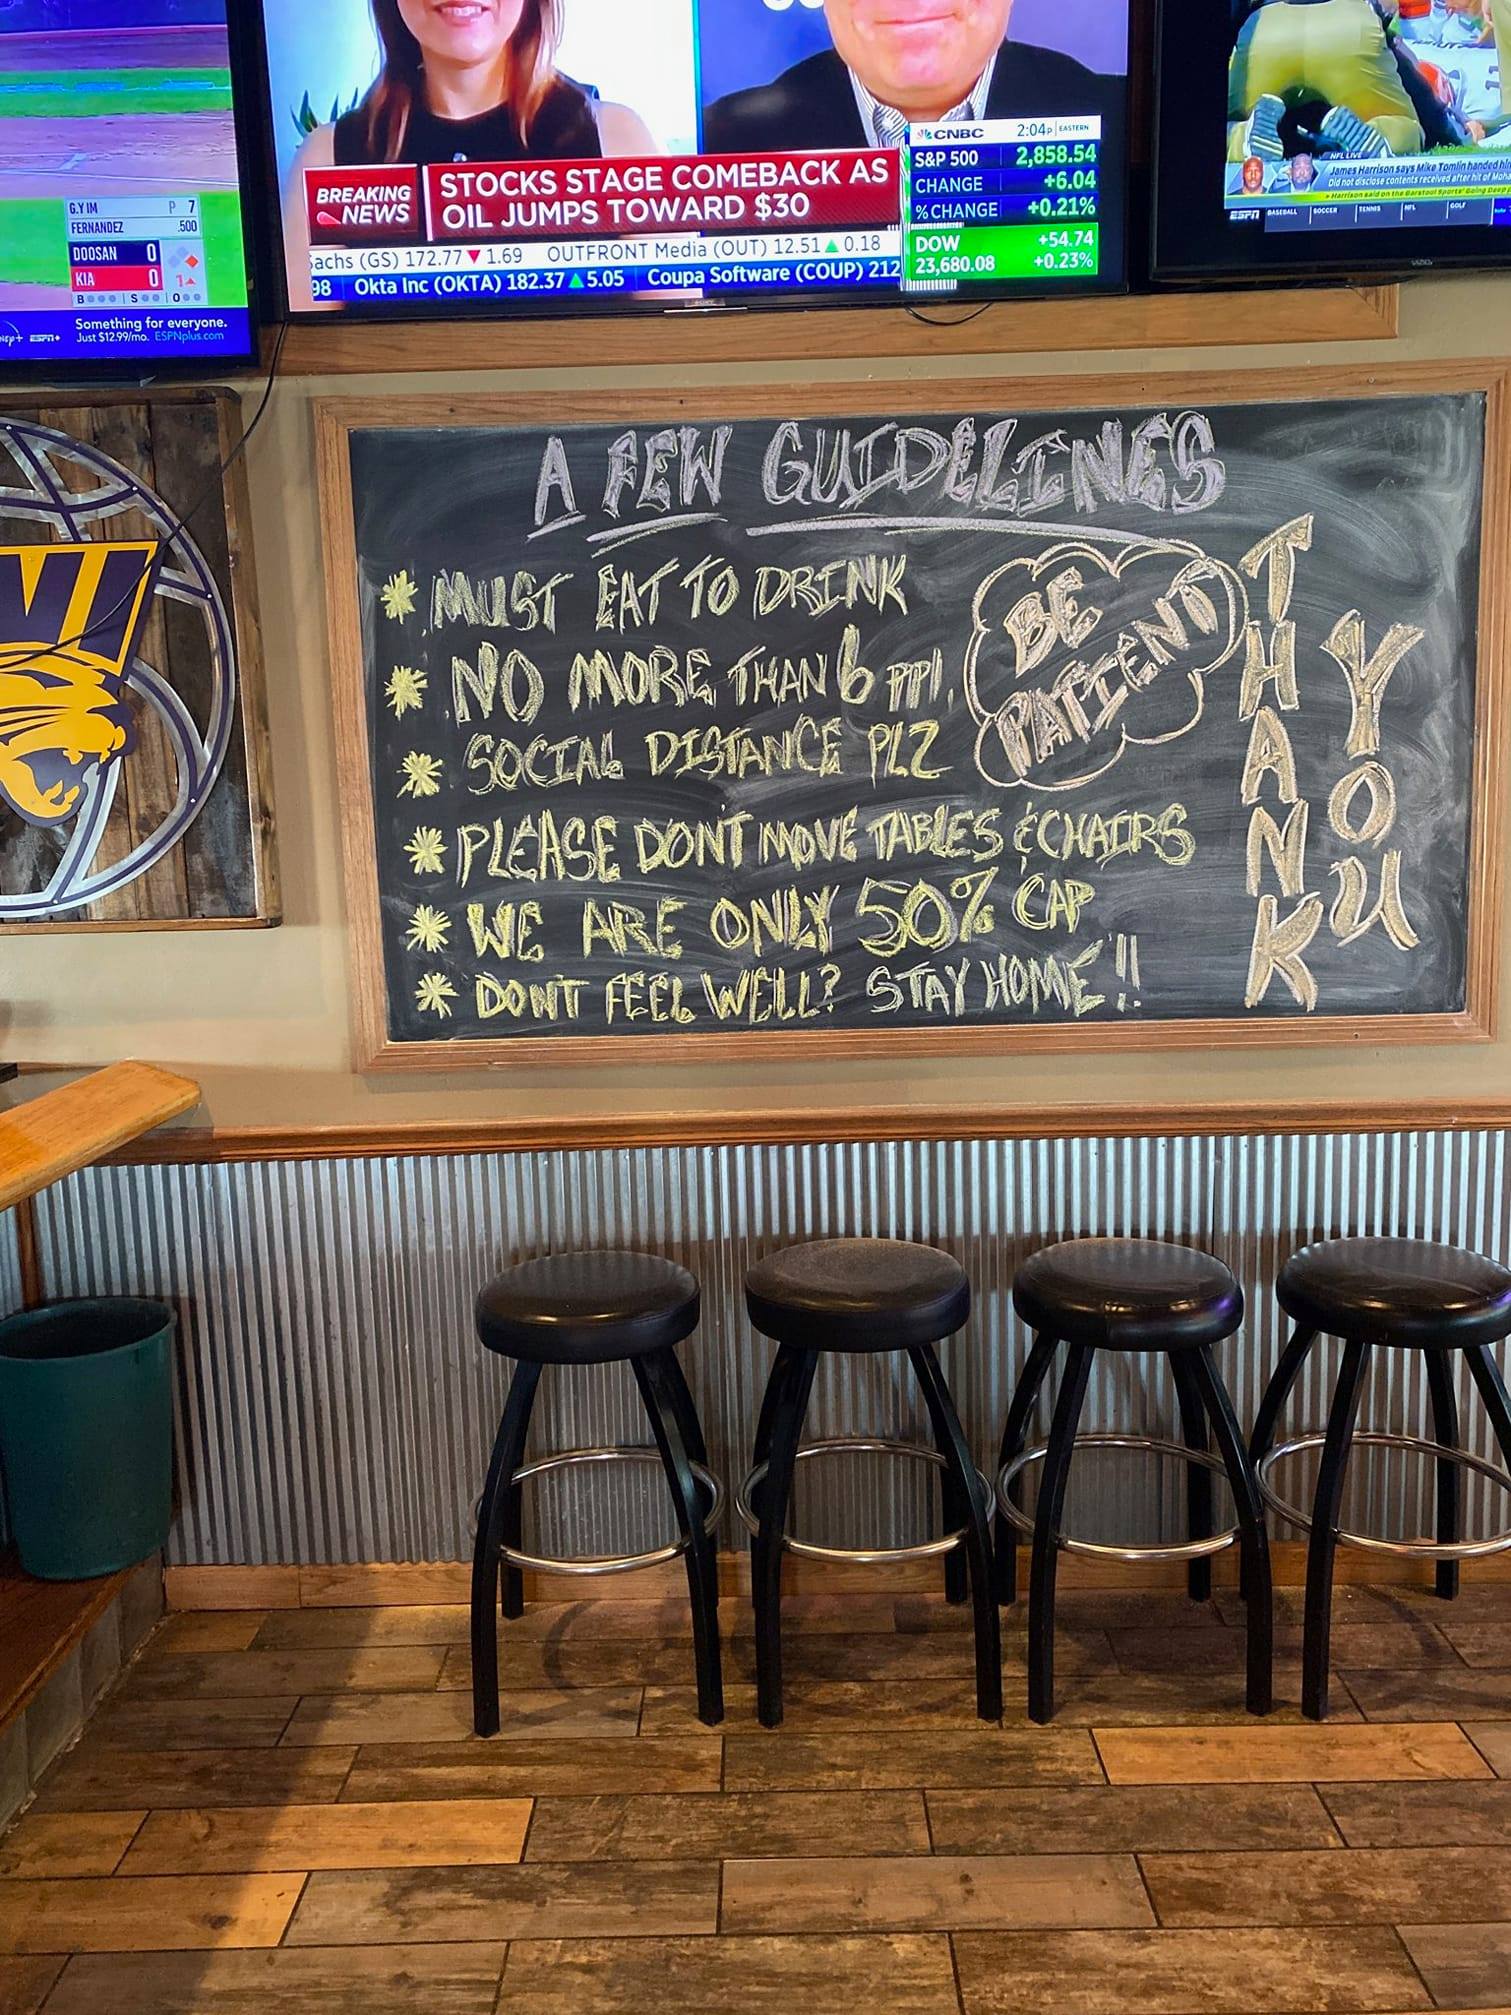 G.Y IM P 7
FERNANDEZ .500
DOOSAN 0
KIA 0 1
B S O
Something for everyone.
Just $12.99/mo. ESPNplus.com
ESPN+
BREAKING NEWS
STOCKS STAGE COMEBACK AS
OIL JUMPS TOWARD $30
Sachs (GS) 172.77▼1.69 OUTFRONT Media (OUT) 12.51▲0.18
98 Okta Inc (OKTA) 182.37▲5.05 Coupa Software (COUP) 212
CNBC 2:04P EASTERN
S&P 500 2,858.54
CHANGE +6.04
% CHANGE +0.21%
DOW +54.74
23,680.08 +0.23%
NFL LIVE
James Harrison says Mike Tomlin handed him
Did not disclose contents received after hit of Moha
ESPN BASEBALL SOCCER TENNIS NFL GOLF
UNI
A FEW GUIDELINES
* MUST EAT TO DRINK
* NO MORE THAN 6 PPL.
* SOCIAL DISTANCE PLZ
* PLEASE DON'T MOVE TABLES & CHAIRS
* WE ARE ONLY 50% CAP
* DONT FEEL WELL? STAY HOME!!
BE
PATIENT
THANK
YOU